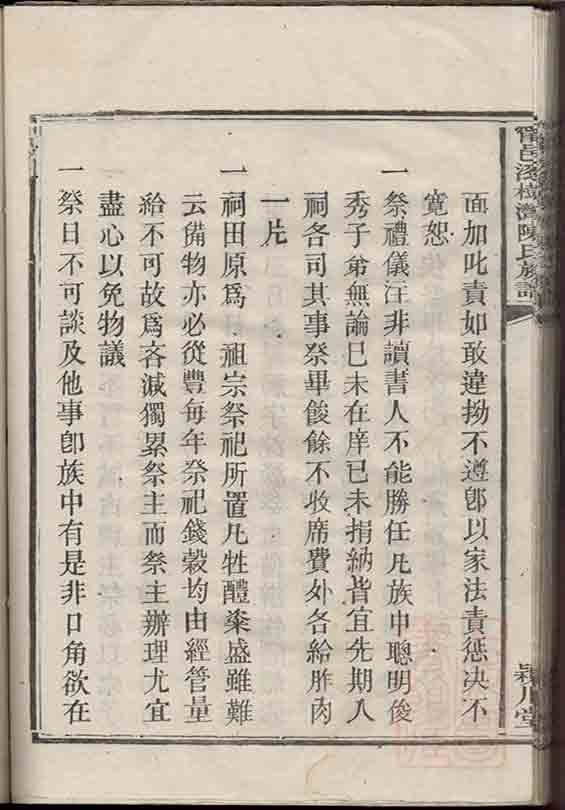 面加叱責如敢違拗不遵卽以家法責惩决不
寬恕
一祭禮儀注非讀書人不能勝任凡族中聰明俊
秀子弟無論已未在庠已未捐納皆宜先期入
祠各司其事祭畢餕餘不收席費外各給胙肉
一片
一祠田原爲 祖宗祭祀所置凡牲醴粢盛雖難
云備物亦必從豐每年祭祀錢穀均由經管量
給不可故爲吝減獨累祭主而祭主辦理尤宜
盡心以免物議
一祭日不可談及他事卽族中有是非口角欲在
甯邑 樹灣陳氏族譜
穎川堂